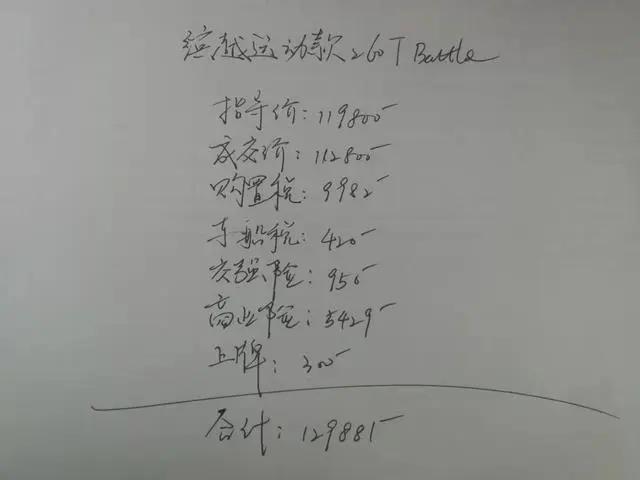 缤越运动款260T Battle
指导价:119800
成交价:112800
购置税:9982
车船税:420
交强险:950
商业险:5429
上牌:300
合计:129881